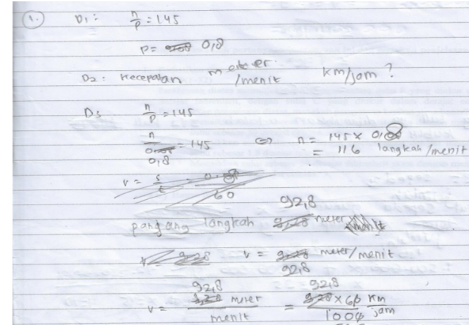 1. D1: n/p = 145
p = 0,8
D2: kecepatan meter/menit km/jam ?
D3 n/p = 145
n/0,8 = 145 ⇔ n = 145 x 0,8
= 116 langkah/menit
panjang langkah 92,8 meter
v = 92,8 meter/menit
v = 92,8 meter/menit = 92,8 x 60/1000 km/jam